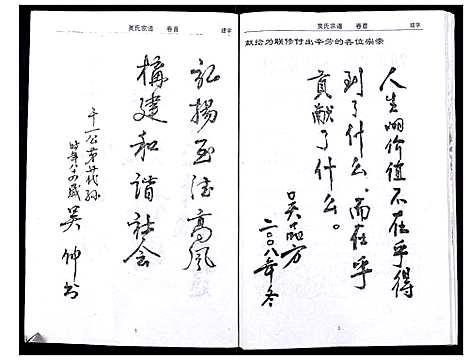 吴氏宗谱　卷首　建字
献给为联修付出辛劳的各位宗亲
人生的价值不在乎得
到了什么，而在乎
贡献了什么。
吴品方
二〇〇八年冬
吴氏宗谱　卷首　建字
弘扬至德高风
構建和谐社会
千一公第廿代孙
时年八十四歲 吴 仲书